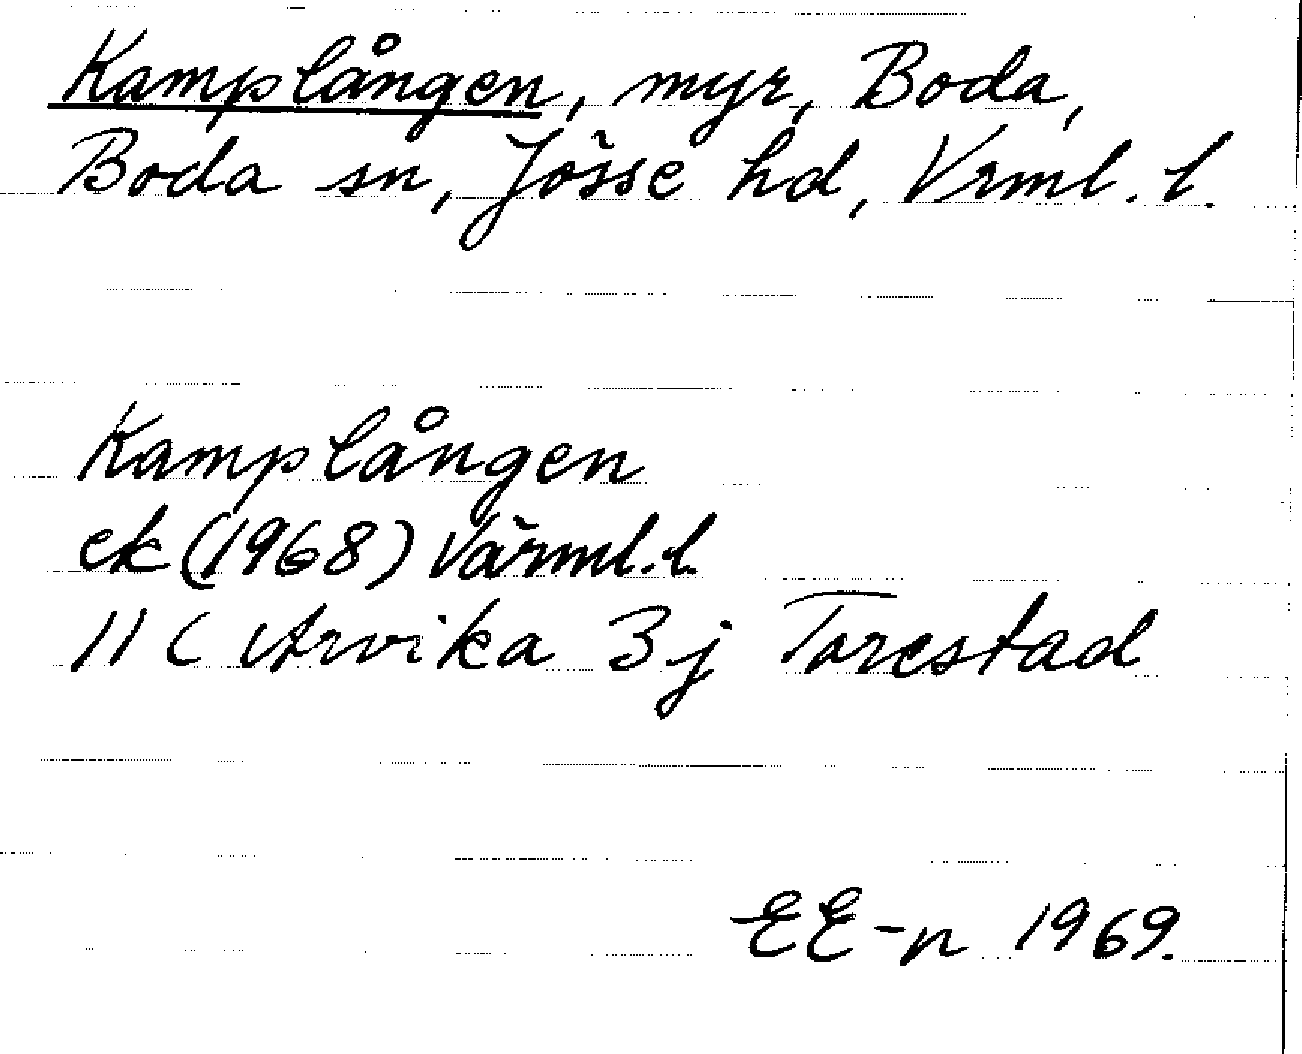 Kamplången, myr, Boda,
Boda sn, Jösse hd, Vrml. l.
Kamplången
ek (1968) Värml. l.
11 C Arvika 3j Torestad
EE-n 1969.